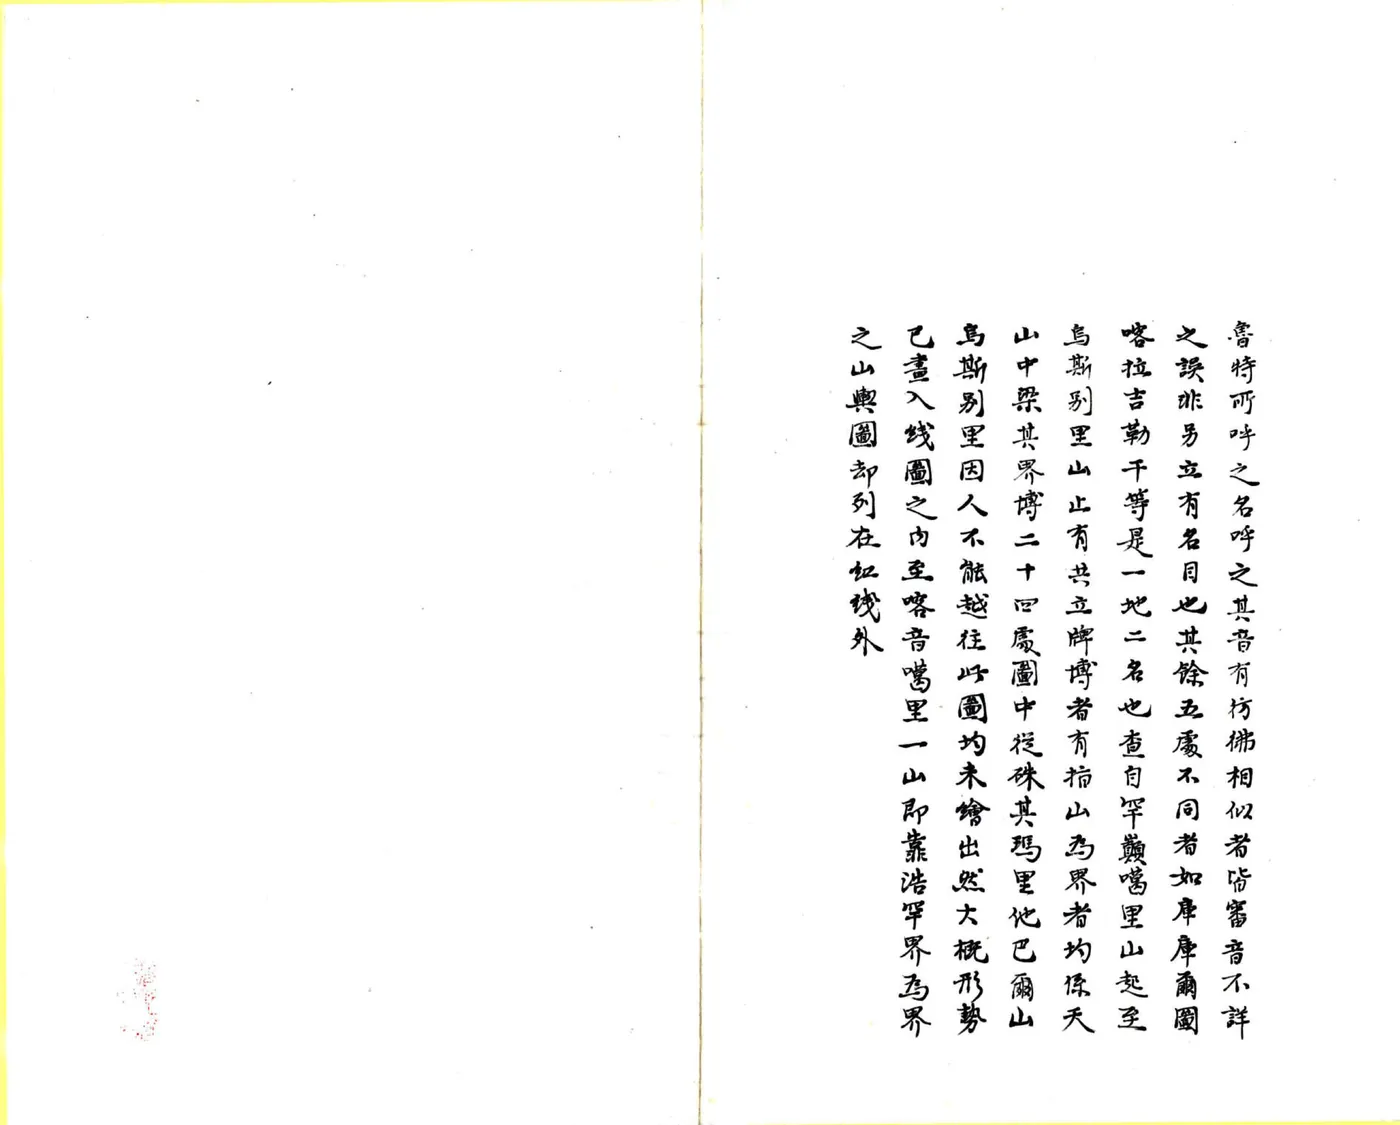 魯特所呼之名呼之其音有彷彿相似者皆審音不詳
之誤非另立有名目也其餘五處不同者如庫庫爾圖
喀拉吉勒干等是一地二名也查自罕巔噶里山起至
烏斯别里山止有共立牌博者有指山為界者均係天
山中梁其界博二十四處圖中從硃其瑪里他巴爾山
烏斯别里因人不能越往此圖均未繪出然大概形勢
已畫入线圖之内至喀音噶里一山即靠浩罕界為界
之山輿圖却列在紅线外